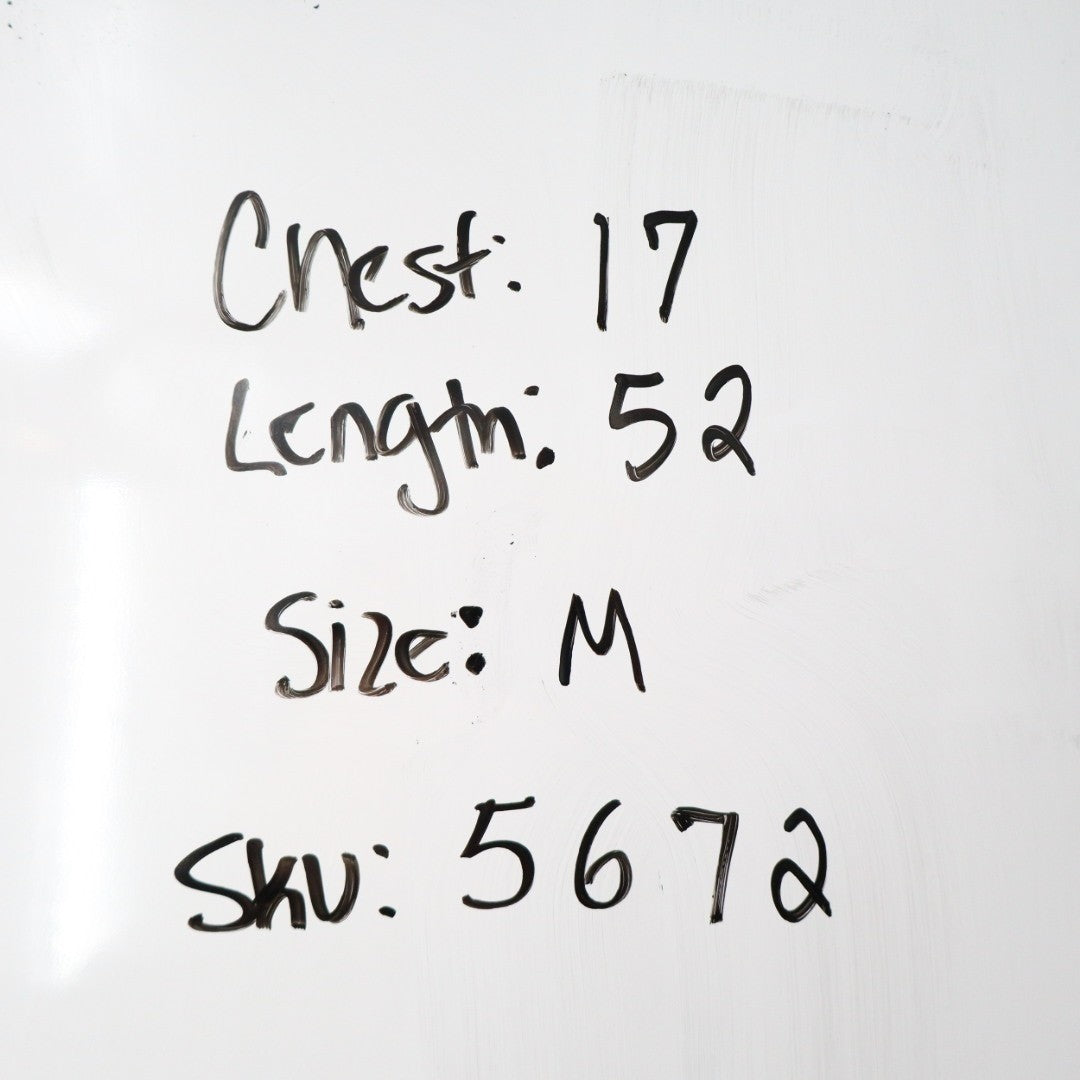 Chest: 17
Length: 52
Size: M
Sku: 5672